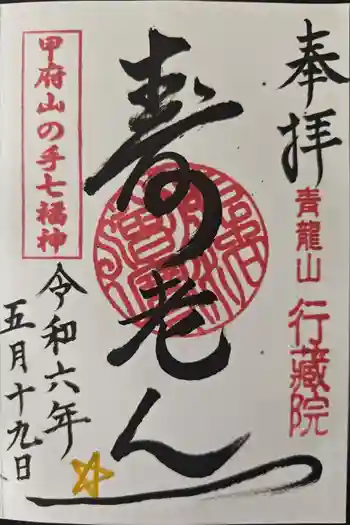 奉拝
青龍山
行蔵院
寿老人
甲府山の手七福神
令和六年
五月十九日